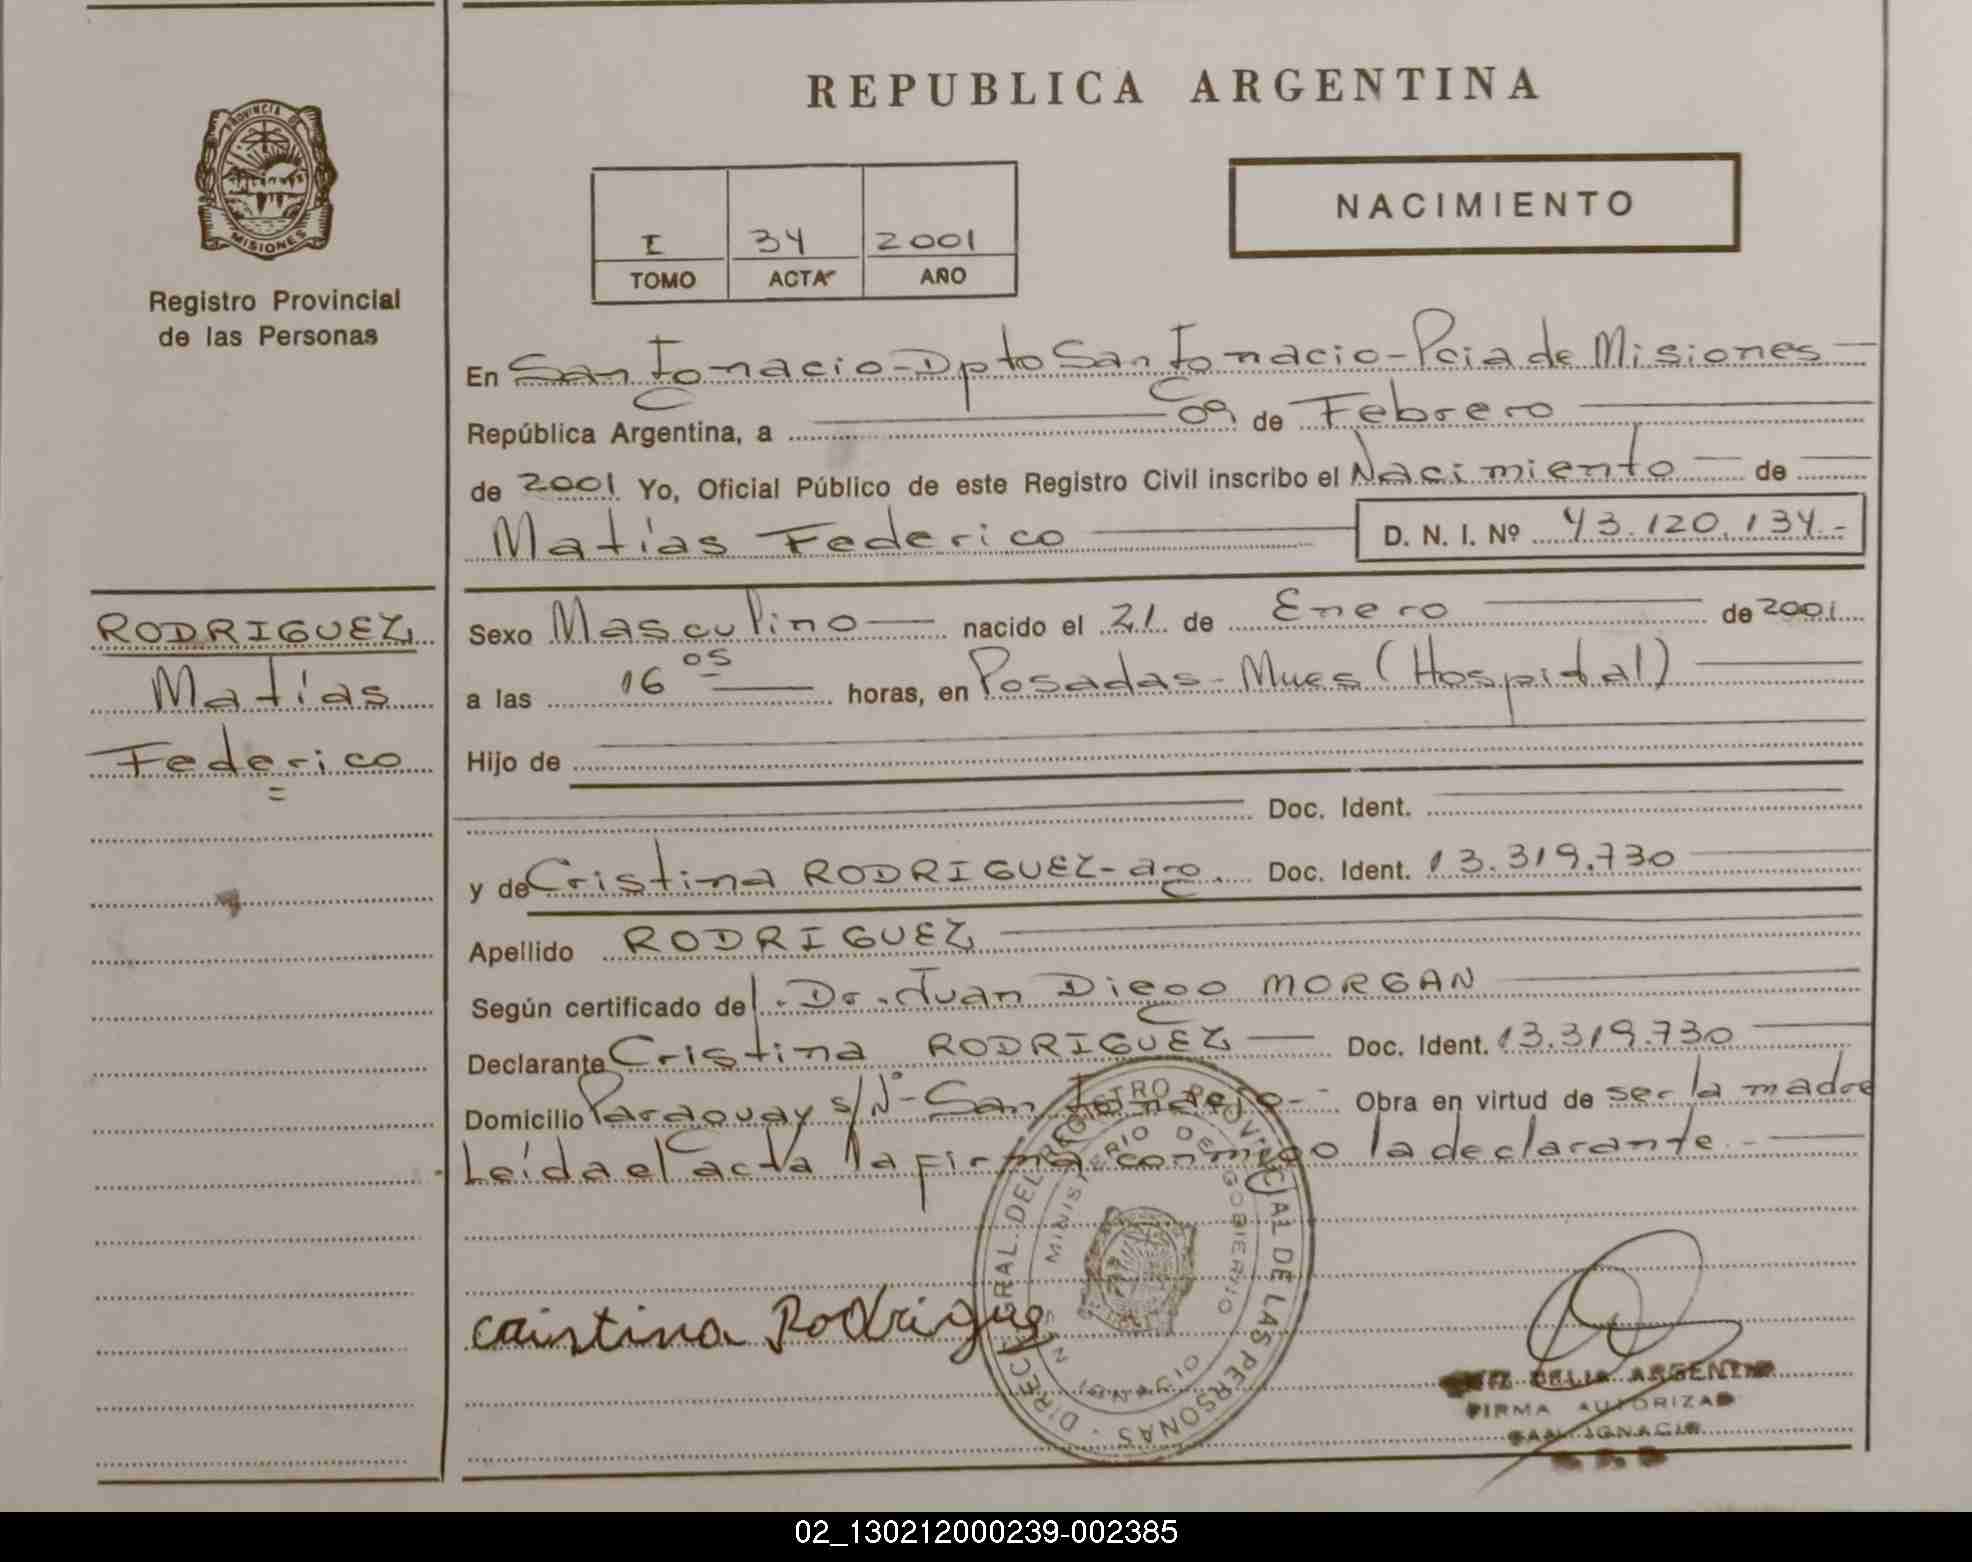 REPUBLICA ARGENTINA
PROVINCIA DE
MISIONES
Registro Provincial
de las Personas
I 34 2001
TOMO ACTA AÑO
NACIMIENTO
En San Ignacio - Dpto San Ignacio - Pcia de Misiones
República Argentina, a 09 de Febrero
de 2001 Yo, Oficial Público de este Registro Civil inscribo el Nacimiento de
Matías Federico D. N. I. Nº 43.120.134.-
RODRIGUEZ
Matías
Federico
Sexo Masculino nacido el 21 de Enero de 2001
a las 16 05 horas, en Posadas - Mnes (Hospital)
Hijo de
Doc. Ident.
y de Cristina RODRIGUEZ - arg. Doc. Ident. 13.319.730
Apellido RODRIGUEZ
Según certificado del Dr. Juan Diego MORGAN
Declarante Cristina RODRIGUEZ Doc. Ident. 13.319.730
Domicilio Paraguay s/Nº - San Ignacio - Obra en virtud de ser la madre
Leída el acta la firma conmigo la declarante.-
DIRECC. GRAL. DEL REGISTRO PROVINCIAL DE LAS PERSONAS
MINISTERIO DE GOBIERNO
Cristina Rodrigue
DELIA ARGENTI
FIRMA AUTORIZAD
SAN IGNACIO
02_130212000239-002385